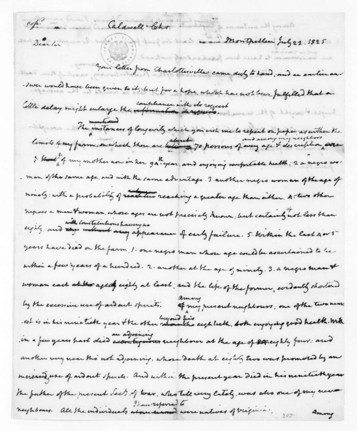 Caldwell Chs
Dear Sir Montpellier July 22. 1825
Your letter from Charlottesville came duly to hand, and an earlier an-
swer would have been given to it, but for a hope, which has not been fulfilled that a
little delay might enlarge the compliance with its request
The instances of longevity which you wish me to repeat on paper as within the
limits to my farm, on which there are about 70 persons of every age & description and among my neighbours
1. of my mother now in her 94th year, and enjoying comfortable health; 2. a negro wo-
man of the same age and with the same advantage. 3 another negro woman of the age of
ninety; with a probability of reaching a greater age than either. 4. two other
negroes a man & woman, whose ages are not precisely known, but certainly not less than
eighty, and with constitutions having no appearance of early failure. 5. Within the last 4 or 5
years have died on the farm. 1. one negro man whose age could be ascertained to be
within a few years of a hundred. 2. another at the age of ninety. 3. a negro man &
woman each aged eighty at least, and the life of the former, evidently shortened
by the excessive use of ardent spirits. Among my present neighbours, one of the two near-
est is in his ninetieth year & the other beyond his eightieth, both enjoying good health. With-
in a few years had died an adjoining neighbour at the age of eighty four, and
another very near tho' not adjoining, whose death at eighty two was promoted by an
use of ardent spirits. And within the present year died in his ninetieth year
the father of the present Secy. of War, who till very lately, was also one of my near
neighbours. All the individuals I have referred to were natives of Virginia.
Among